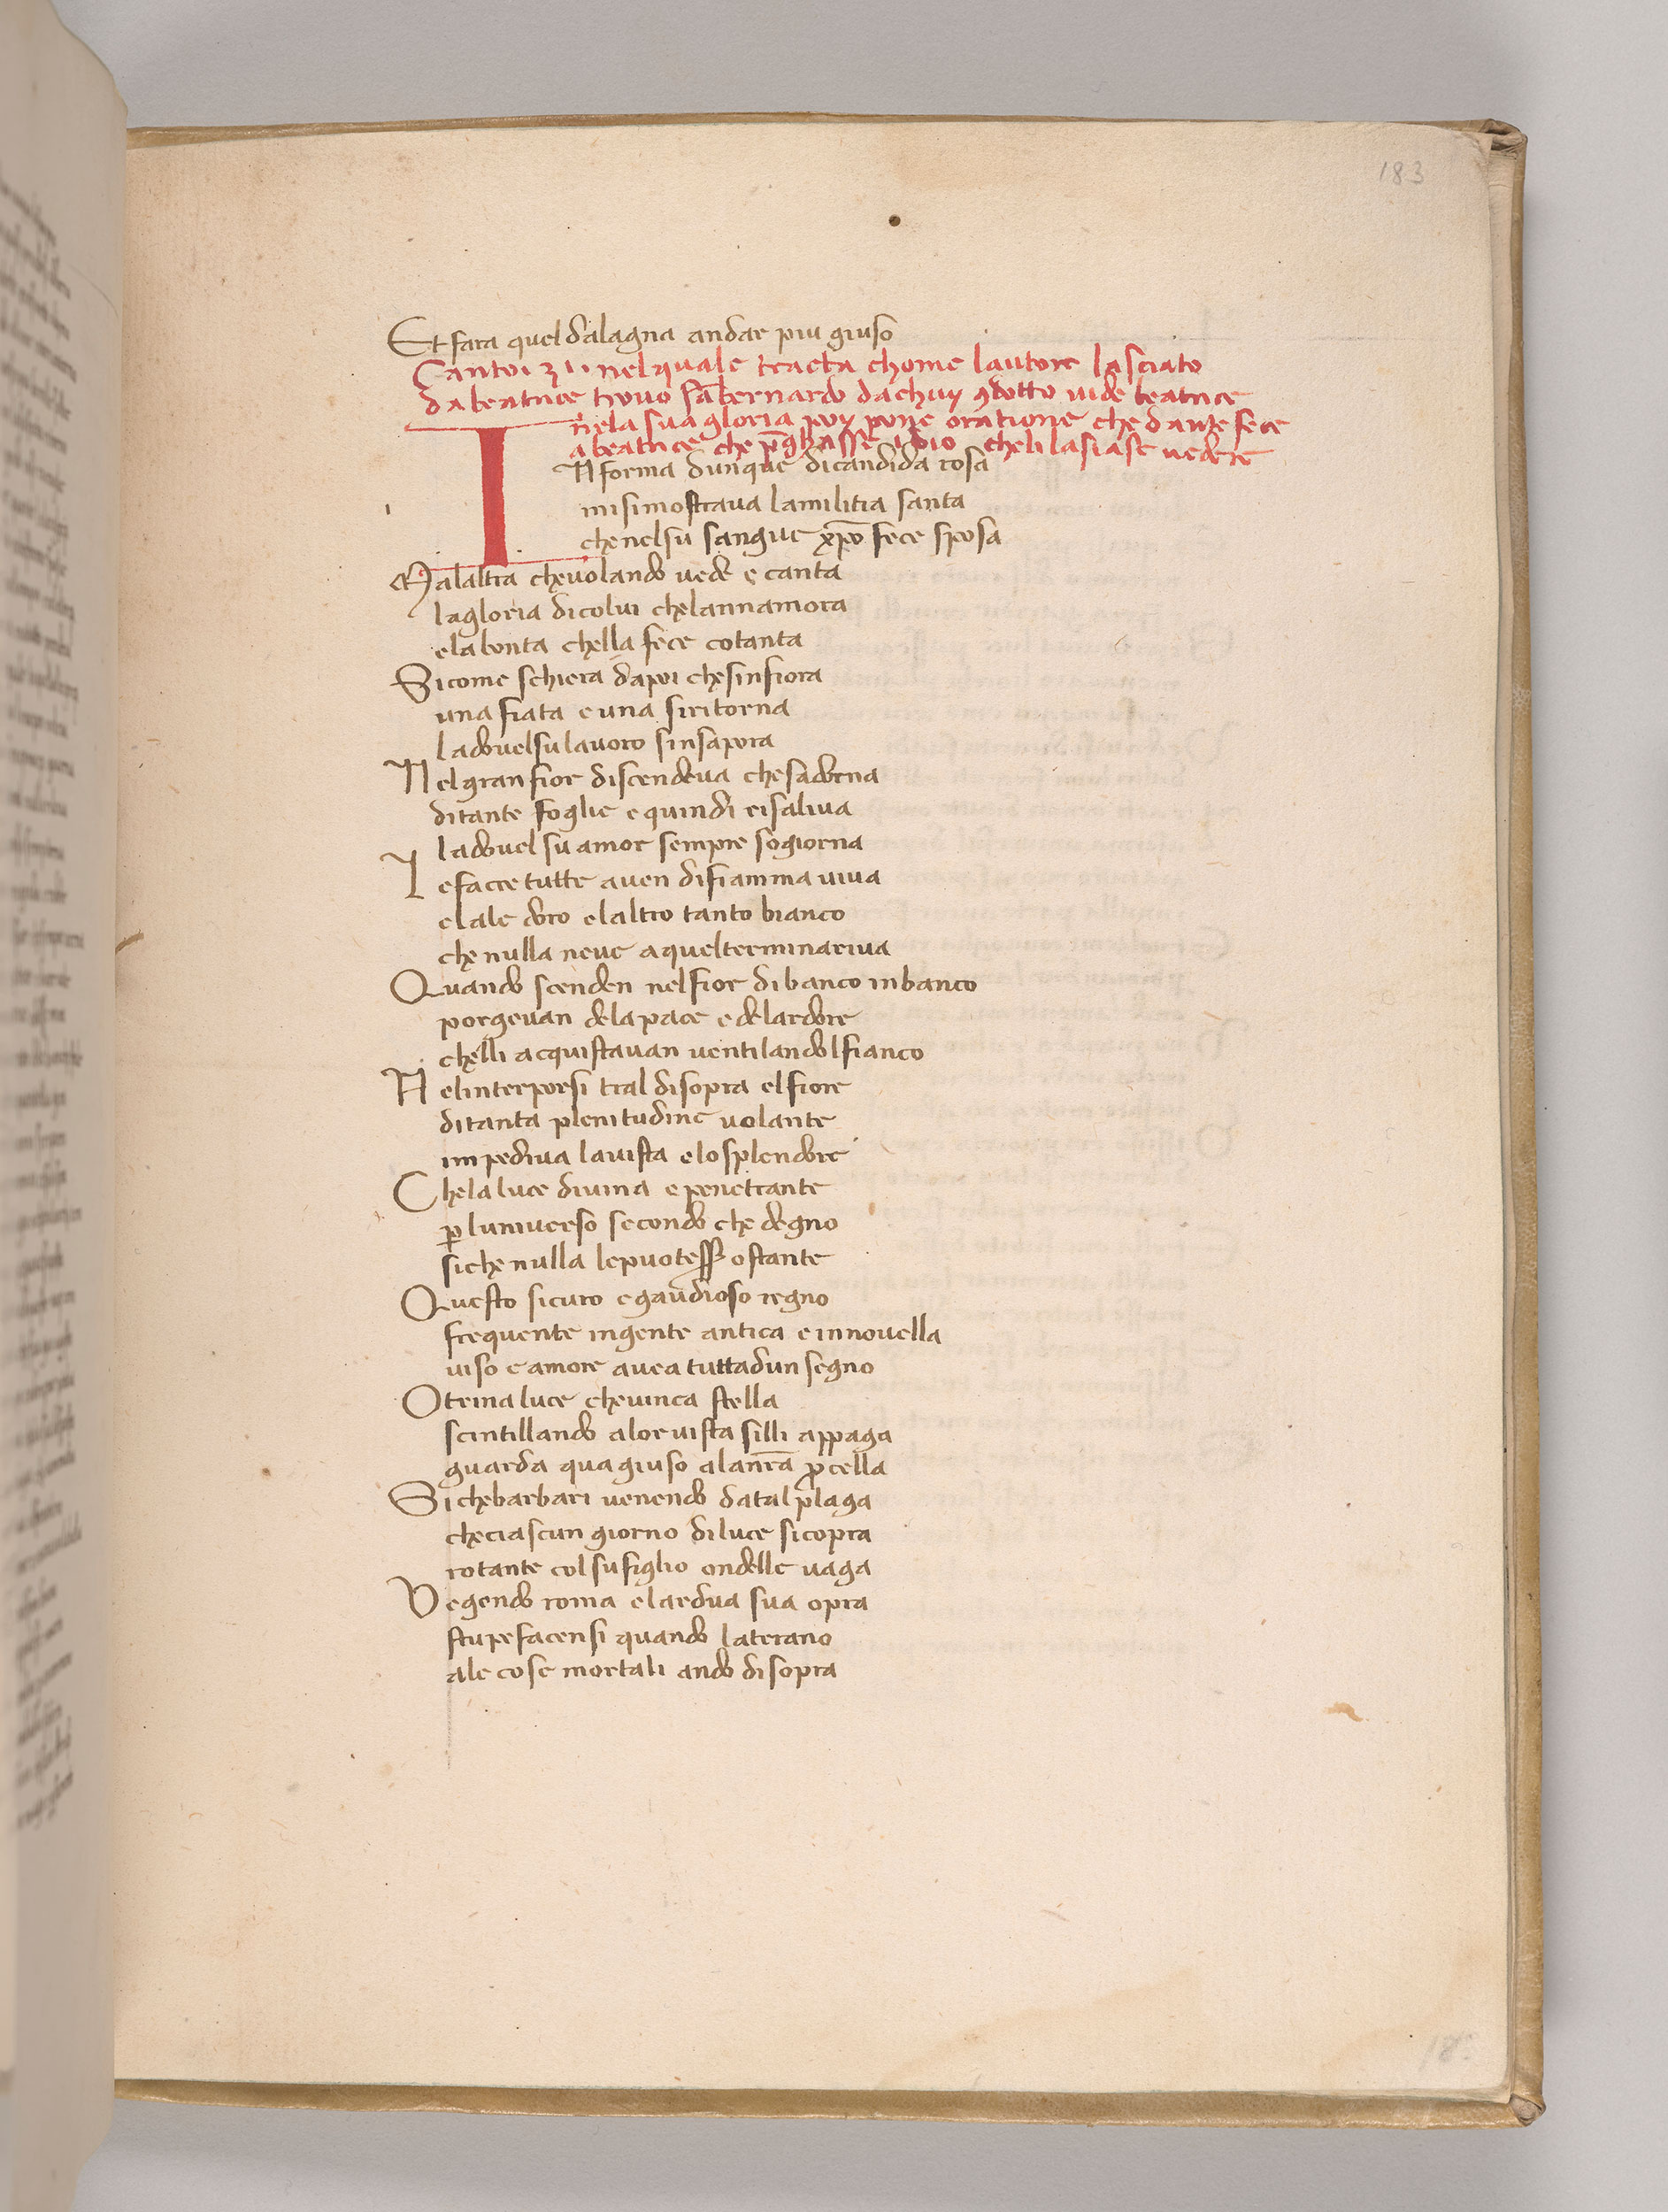 183
Et fara quel dalagna andar piu giuso
nel quale tracta chome lautore lasciato
da beatrice trovo sãbernardo dachuy 9dotto vide beatrice
nela sua gloria poy pone oratione che dante fece
abeatrice che p̃ghasse idio cheli lasiase vedere
IN forma dunque dicandida rosa
misimostrava lamilitia santa
chenelsu sangue xp̃o fece sposa
Malaltra chevolando vede e canta
lagloria dicolui chelannamora
elabonta chella fece cotanta
Sicome schiera dapoi chesinfiora
una fiata e una siritorna
ladovelsulavoro sinsapora
Nelgran fior discendeva chesadorna
ditante foglie e quindi risaliva
ladovel su amor sempre sogiorna
Lefacce tutte aven difiamma viva
elale doro elaltro tanto bianco
che nulla neve aquelterminariva
Quando scenden nelfior dibanco inbanco
porgevan delapace e delardore
chelli acquistavan ventilandolfianco
Nelinterporsi tral disopra elfiore
ditanta plenitudine volante
impediva lavista elosplendore
Chelaluce divina e penetrante
ꝑ luniverso secondo che degno
siche nulla lepuoteẜẜ ostante
Questo sicuro egaudioso regno
frequente ingente antica einnovella
viso e amore avea tuttadun segno
Otrina luce chevinca stella
scintillando alorvista silli appaga
guarda quagiuso alanr̃a ꝓcella
Sichebarbari venendo datal plaga
checiascun giorno diluce sicopra
rotante colsufiglio ondelle vaga
Vegendo roma elardua sua opra
stupefacensi quando laterano
ale cose mortali ando disopra